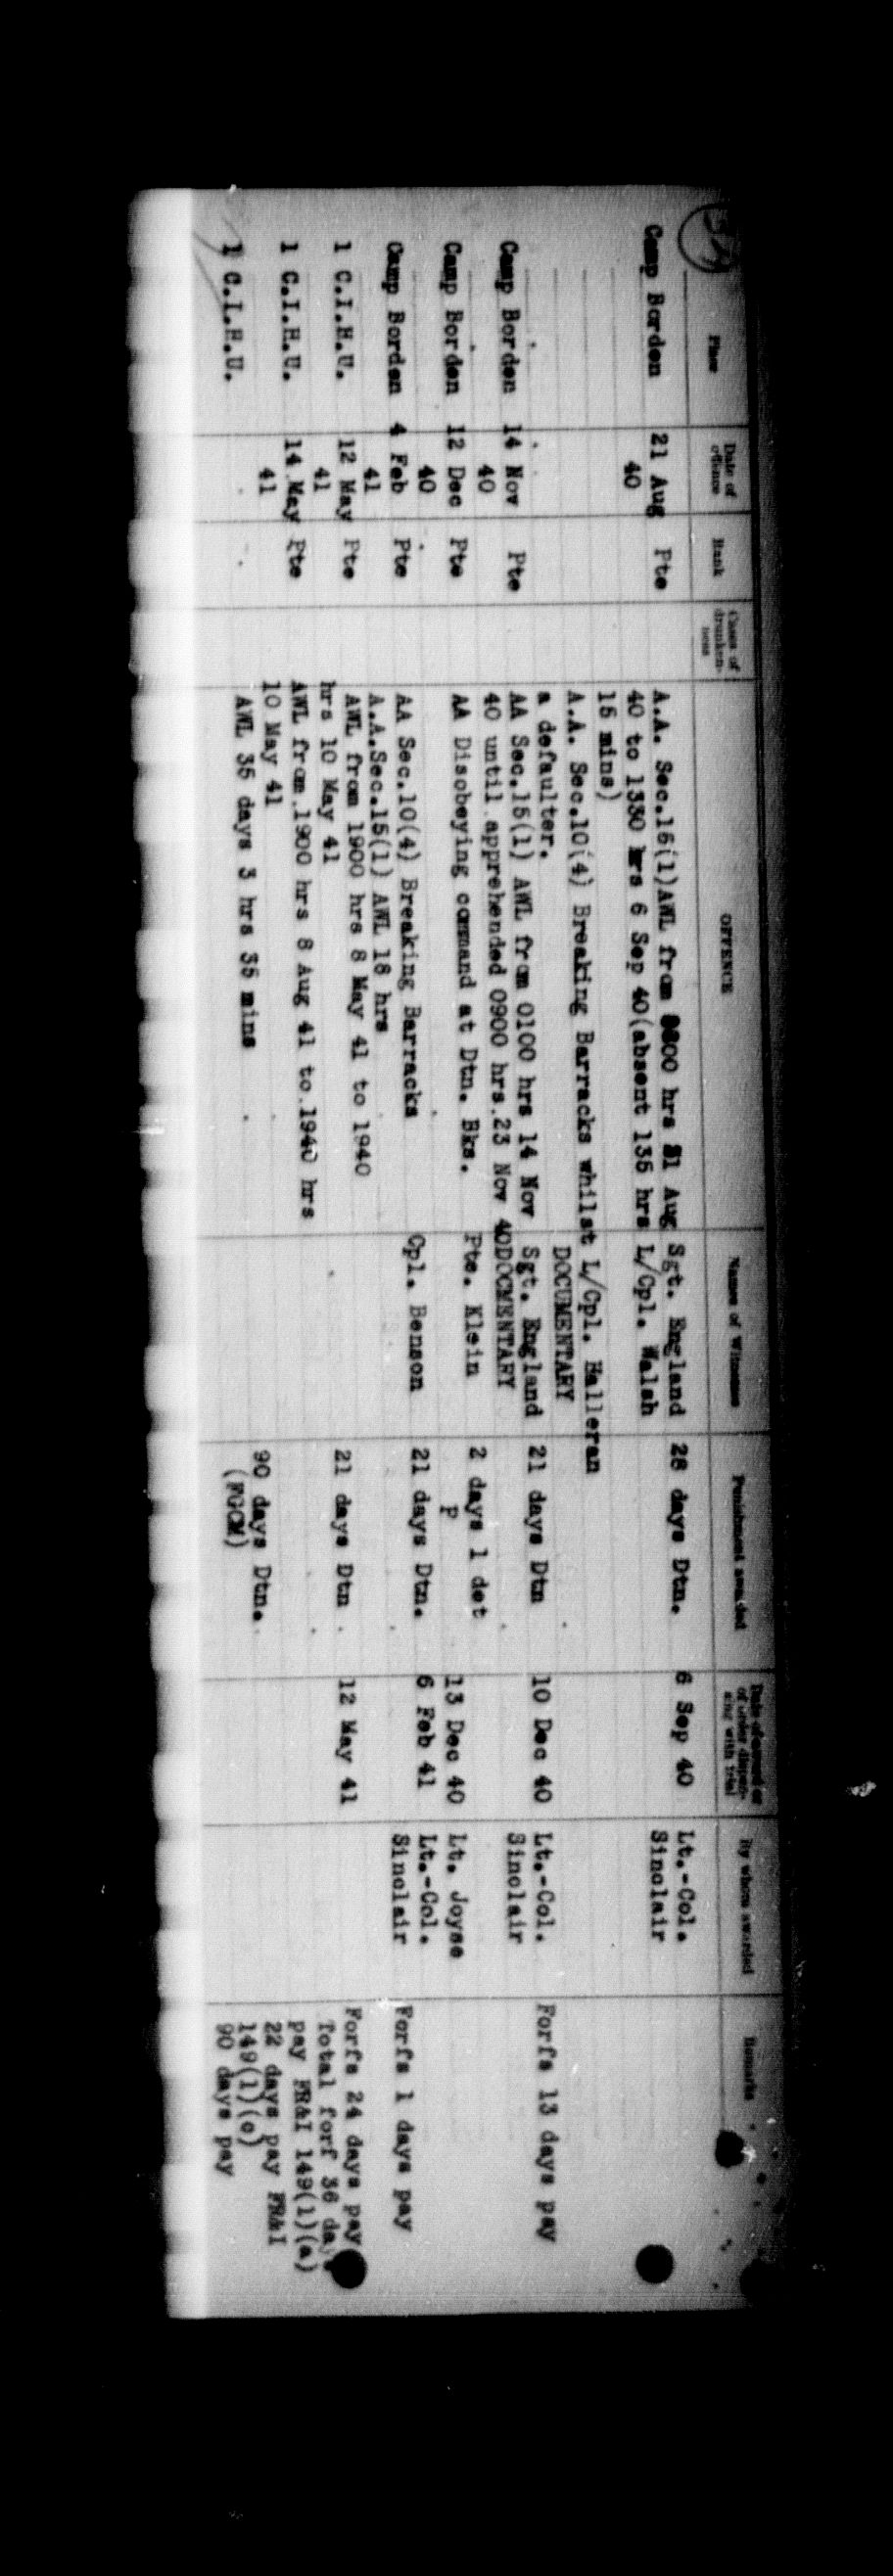 Place Date of offence Rank Cases of drunkenness OFFENCE Names of Witnesses Punishment awarded By whom awarded Remarks
Camp Borden 21 Aug Pte A.A. Sec.15(1)AWL from hrs Aug Sgt. England 28 days Dtn. 6 Sep 40 Lt.-Col.
40 40 to 1330 hrs 6 Sep 40(absent 135 hrs L/Cpl. Walsh Sinclair
15 mins)
A.A. Sec.10(4) Breaking Barracks whilst L/Cpl. Halleran
a defaulter. DOCUMENTARY
Camp Borden 14 Nov Pte AA Sec.15(1) AWL from 0100 hrs 14 Nov Sgt. England 21 days Dtn 10 Dec 40 Lt.-Col. Forfs 13 days pay
40 40 until apprehended 0900 hrs.23 Nov 40DOCMENTARY Sinclair
Camp Borden 12 Dec Pte AA Disobeying command at Dtn. Bks. Pte. Klein 2 days 1 det 13 Dec 40 Lt. Joyse
40 P
Camp Borden 4 Feb Pte AA Sec.10(4) Breaking Barracks Cpl. Benson 21 days Dtn. 6 Feb 41 Lt.-Col. Forfs 1 days pay
41 A.A.Sec.15(1) AWL 18 hrs Sinclair
1 C.I.H.U. 12 May Pte AWL from 1900 hrs 8 May 41 to 1940 21 days Dtn 12 May 41 Forfs 24 days pay
41 hrs 10 May 41 Total forf 36
1 C.I.H.U. 14 May Pte AWL from 1900 hrs 8 Aug 41 to 1940 hrs pay FR&I 149(1)(a)
41 10 May 41 22 days pay FR&I
1 C.I.H.U. AWL 35 days 3 hrs 35 mins 90 days Dtn. 149(1)(c)
(FGCM) 90 days pay